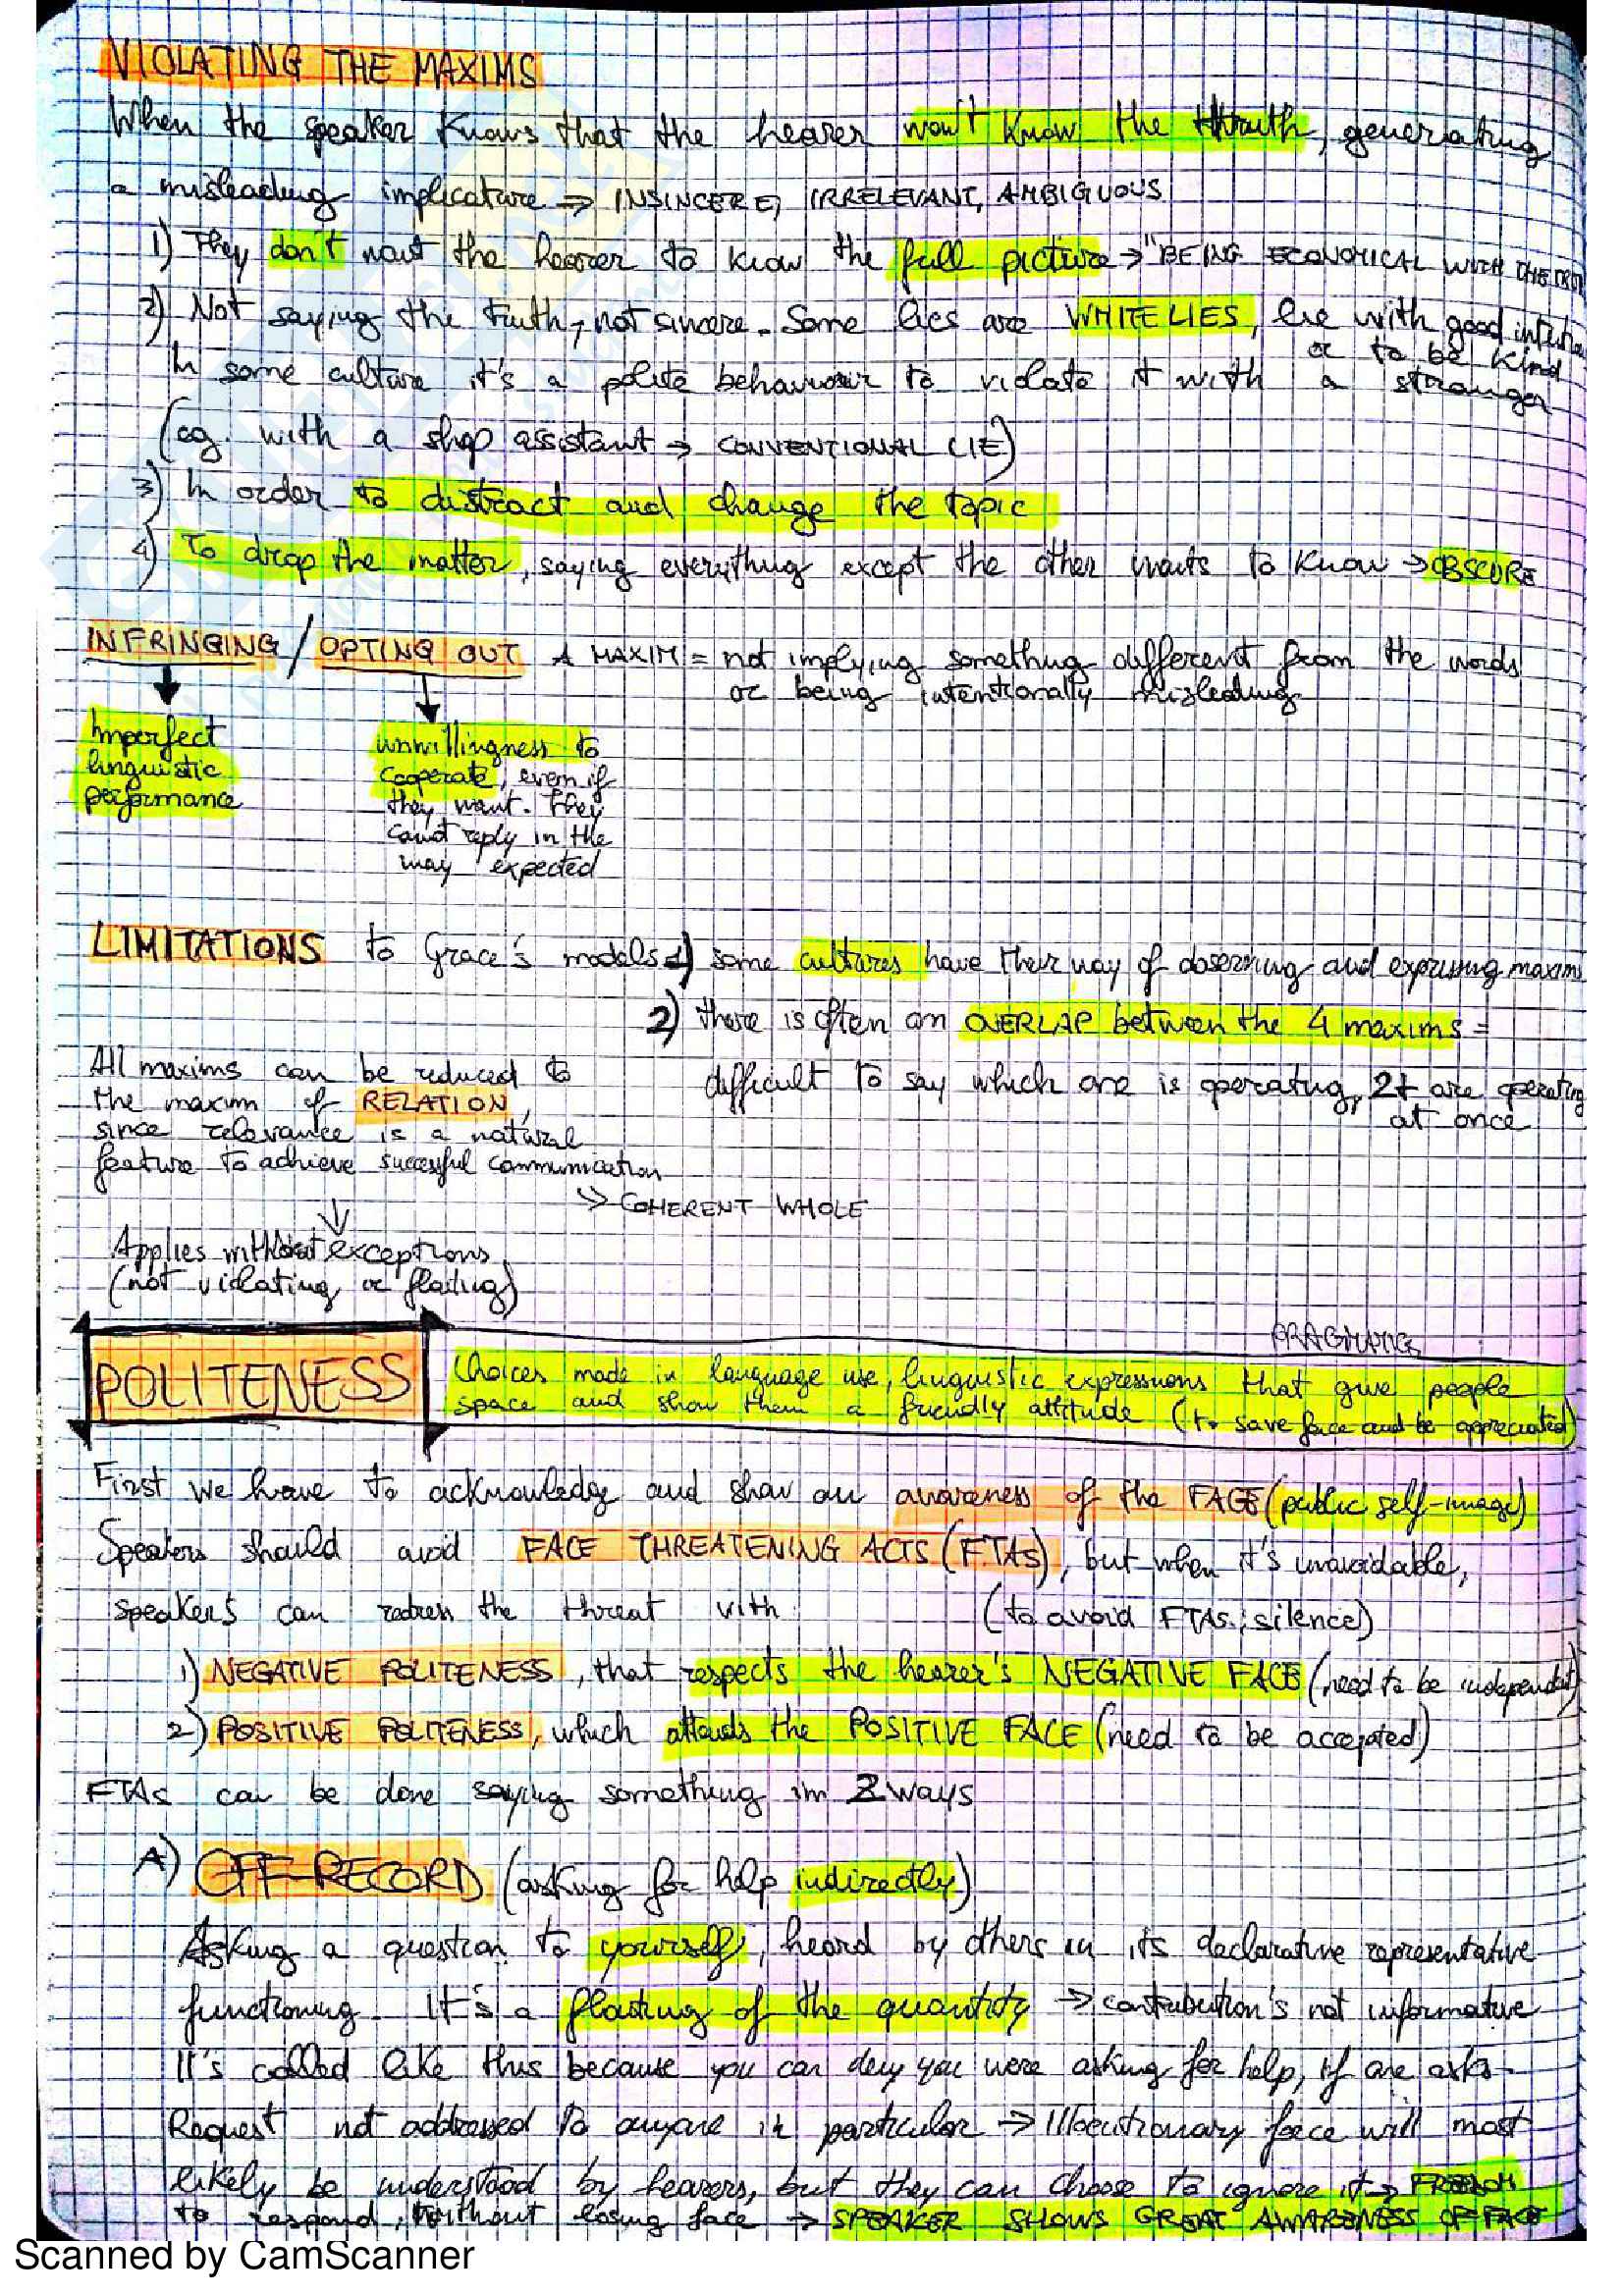 VIOLATING THE MAXIMS
When the speaker knows that the hearer won't know the truth, generating
a misleading implicature ⇒ INSINCERE, IRRELEVANT, AMBIGUOUS
1) They don't want the hearer to know the full picture → "BEING ECONOMICAL WITH THE
2) Not saying the truth, not sincere. Some lies are WHITE LIES, lie with good
or to be kind
In some culture it's a polite behaviour to violate it with a stranger
(eg. with a shop assistant → CONVENTIONAL LIE)
3) In order to distract and change the topic
4) To drop the matter, saying everything except the other wants to know → OBSCURE
INFRINGING / OPTING OUT A MAXIM = not implying something different from the words
or being intentionally misleading
Imperfect
linguistic
performance
unwillingness to
cooperate, even if
they want. They
cannot reply in the
way expected
LIMITATIONS to Grace's models 1) some cultures have their way of observing and expressing maxims
2) there is often an OVERLAP between the 4 maxims =
difficult to say which one is operating, 2+ are operating
at once
All maxims can be reduced to
the maxim of RELATION,
since relevance is a natural
feature to achieve successful communication
⇒ COHERENT WHOLE
Applies without exceptions
(not violating or floating)
PRAGMATICS
POLITENESS
Choices made in language use, linguistic expressions that give people
space and show them a friendly attitude (to save face and be appreciated)
First we have to acknowledge and show an awareness of the FACE (public self-image)
Speakers should avoid FACE THREATENING ACTS (FTAs), but when it's unavoidable,
speakers can redress the threat with (to avoid FTAs: silence)
1) NEGATIVE POLITENESS, that respects the hearer's NEGATIVE FACE (need to be independent)
2) POSITIVE POLITENESS, which attends the POSITIVE FACE (need to be accepted)
FTAs can be done saying something in 2 ways
A) OFF-RECORD (asking for help indirectly)
Asking a question to yourself, heard by others in its declarative representative
functioning. It's a floating of the quantity → contribution's not informative
It's called like this because you can deny you were asking for help, if one asks.
Request not addressed to anyone in particular → Illocutionary force will most
likely be understood by hearers, but they can choose to ignore it → FREEDOM
to respond, without losing face → SPEAKER SHOWS GREAT AWARENESS OF FACE
Scanned by CamScanner